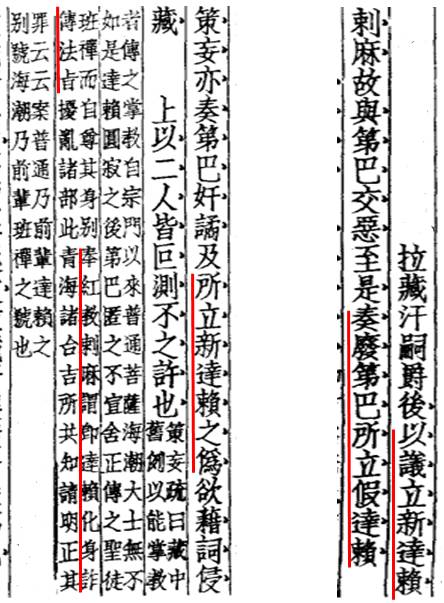 拉藏汗嗣爵後以議立新達賴
剌麻故與第巴交惡至是奏廢第巴所立假達賴
策妄亦奏第巴奸譎及所立新達賴之僞欲藉詞侵
藏　上以二人皆叵測不之許也
策妄疏曰藏中
舊例以能掌教
者傳之掌教自宗門以來普通菩薩海潮大士無不
如是達賴圓寂之後第巴匿之不宜舍正傳之聖徒
班禪而自尊其身别奉紅教剌麻謂卽達賴化身詐
傳法旨擾亂諸部此青海諸台吉所共知請明正其
罪云云案普通乃前輩達賴之
別號海潮乃前輩班禪之號也